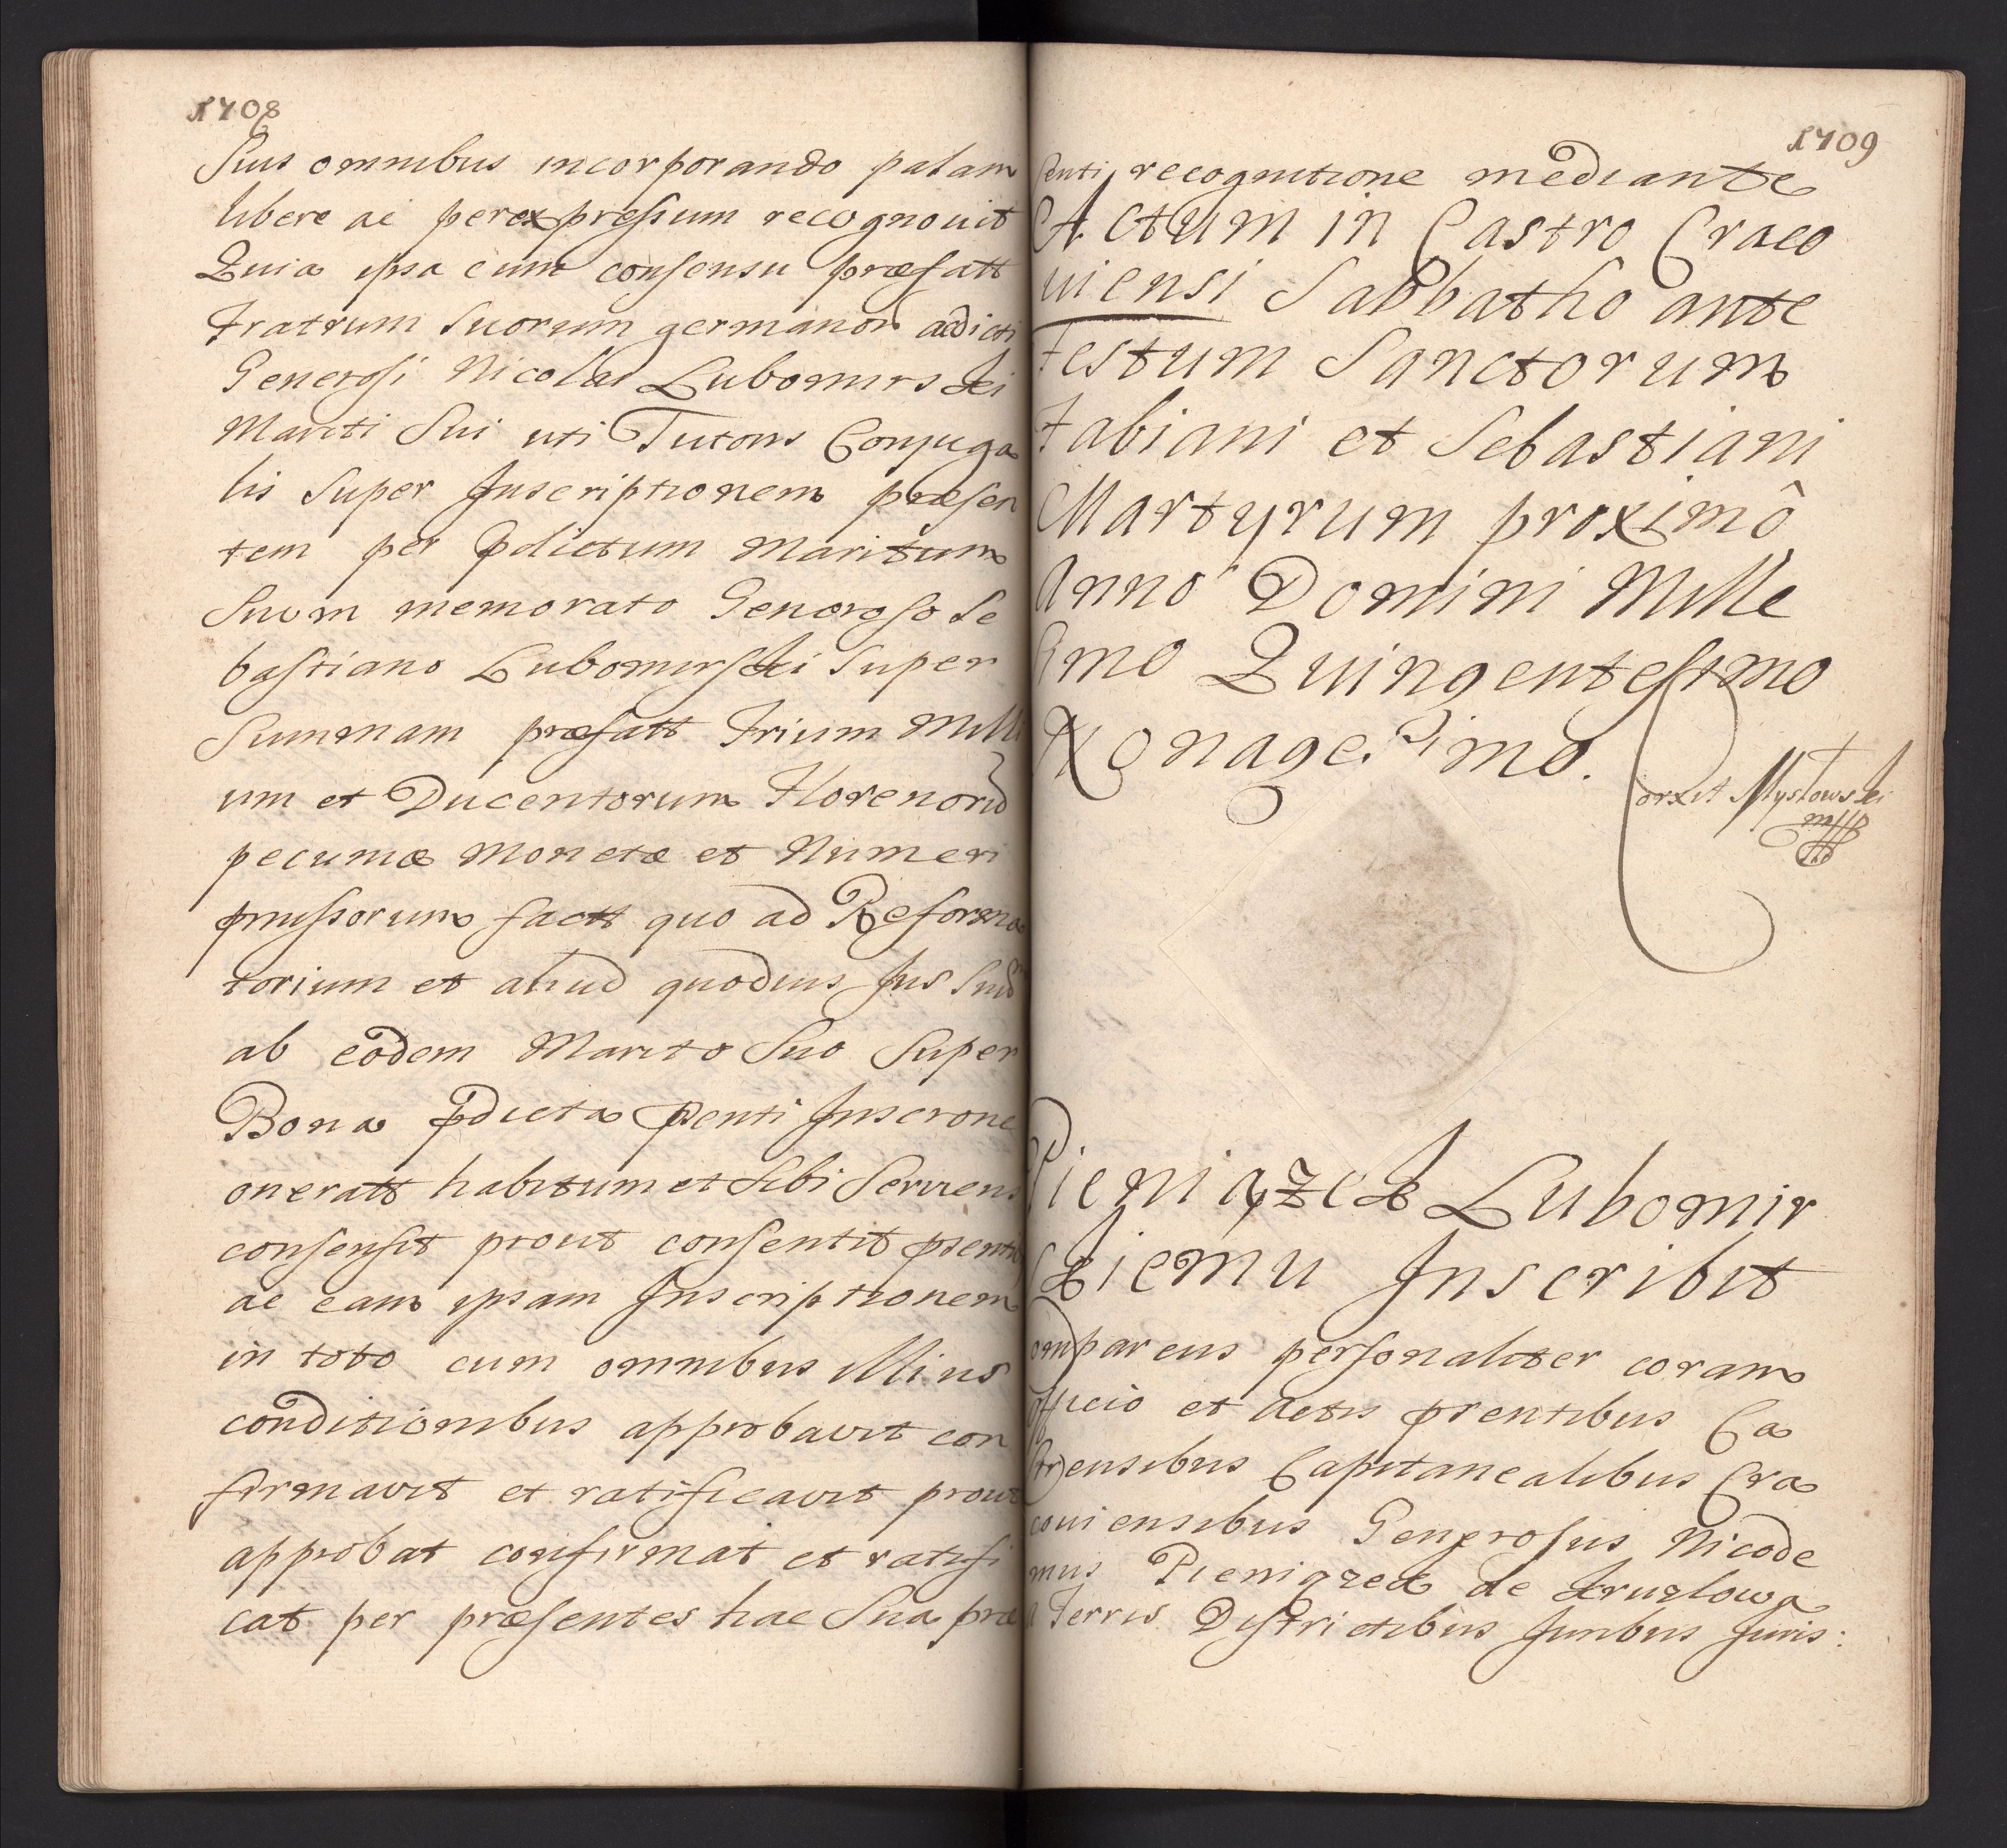 1708
Suis omnibus incorporando palam
libere ac per expressum recognovit
Quia ipsa cum consensu præfatt
Fratrum Suorum germanor ac dicti
Generosi Nicolai Lubomirskei
Mariti Sui uti Tutoris Conjuga
lis Super Inscriptionem præsen
tem per pdictum Maritum
Suum memorato Generoso Se
bastiano Lubomirskei Super
Summam præfatt Trium Milli
um et Ducentorum Florenoru
pecuniæ Monetæ et Numeri
pmissorum factt quo ad Reforma
torium et aliud quodvis Jus Suu
ab eodem Marito Suo Super
Bona pdicta psenti Inscrone
oneratt habitum et Sibi Serviens
consensit prout consentit psentib
ac eam ipsam Inscriptionem
in toto cum omnibus Illius
conditionibus approbavit con
firmavit et ratificavit prout
approbat confirmat et ratifi
cat per præsentes hac Sua præ
1709
senti recognitione mediante
Actum in Castro Craco
viensi Sabbatho ante
Festum Sanctorum
Fabiani et Sebastiani
Martyrum proximô
Anno Domini Mille
simo Quingentesimo
Nonagesimo.
Corxit Mystowskei
Pieniązek Lubomir
skiemu Inscribit
Comparens personaliter coram
officio et Actis psentibus Ca
strensibus Capitanealibus Cra
coviensibus Generosus Nicode
mus Pieniązek de Kruzlowa
a Terris Districtibus Juribus Juris: